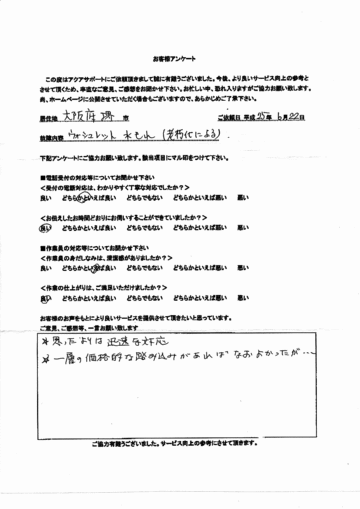 お客様アンケート
この度はアクアサポートにご依頼頂きまして誠に有難うございました。今後、より良いサービス向上の参考と
させて頂くため、率直なご意見、ご感想をお聞かせ下さい。お忙しい中、恐れ入りますがご協力お願い致します。
尚、ホームページに公開させていただく場合もございますので、あらかじめご了承下さい。
居住地 大阪府堺市 ご依頼日 平成25年6月22日
故障内容 ウォシュレット 水もれ (老朽化による)
下記アンケートにご協力お願い致します。該当項目にマル印をつけて下さい。
■電話受付の対応等についてお聞かせ下さい
＜受付の電話対応は、わかりやすく丁寧な対応でしたか？＞
良い どちらかといえば良い どちらでもない どちらかといえば悪い 悪い
＜お伝えしたお時間どおりにお伺いすることができていましたか？＞
良い どちらかといえば良い どちらでもない どちらかといえば悪い 悪い
■作業員の対応等についてお聞かせ下さい
＜作業員の身だしなみは、清潔感がありましたか？＞
良い どちらかといえば良い どちらでもない どちらかといえば悪い 悪い
＜作業の仕上がりは、ご満足いただけましたか？＞
良い どちらかといえば良い どちらでもない どちらかといえば悪い 悪い
お客様のお声をもとにより良いサービスを提供させて頂きたいと思っています。
ご意見、ご感想等、一言お願い致します
*思ったよりは迅速な対応
*一層の価格的な踏み込みがあればなおよかったが…
ご協力有難うございました。サービス向上の参考にさせて頂きます。